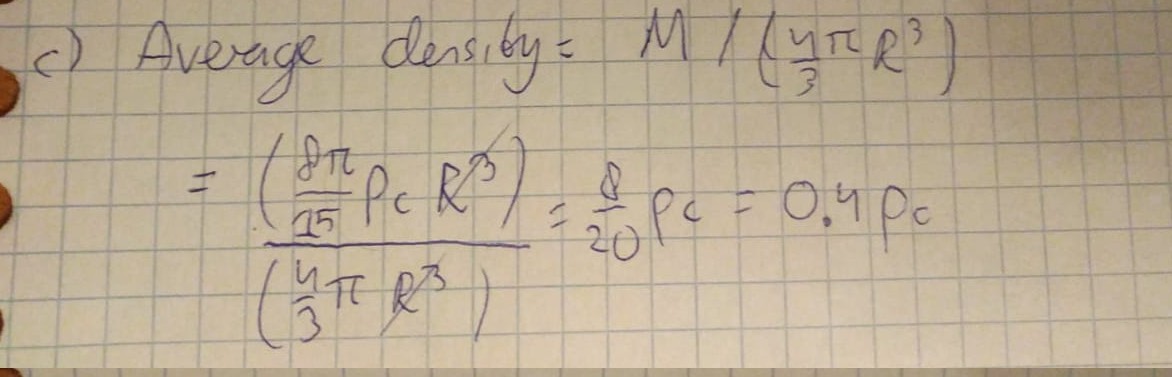 c) Average density = M / (4/3 π R³)
= (8π/15 ρc R³) / (4/3 π R³) = 8/20 ρc = 0.4 ρc